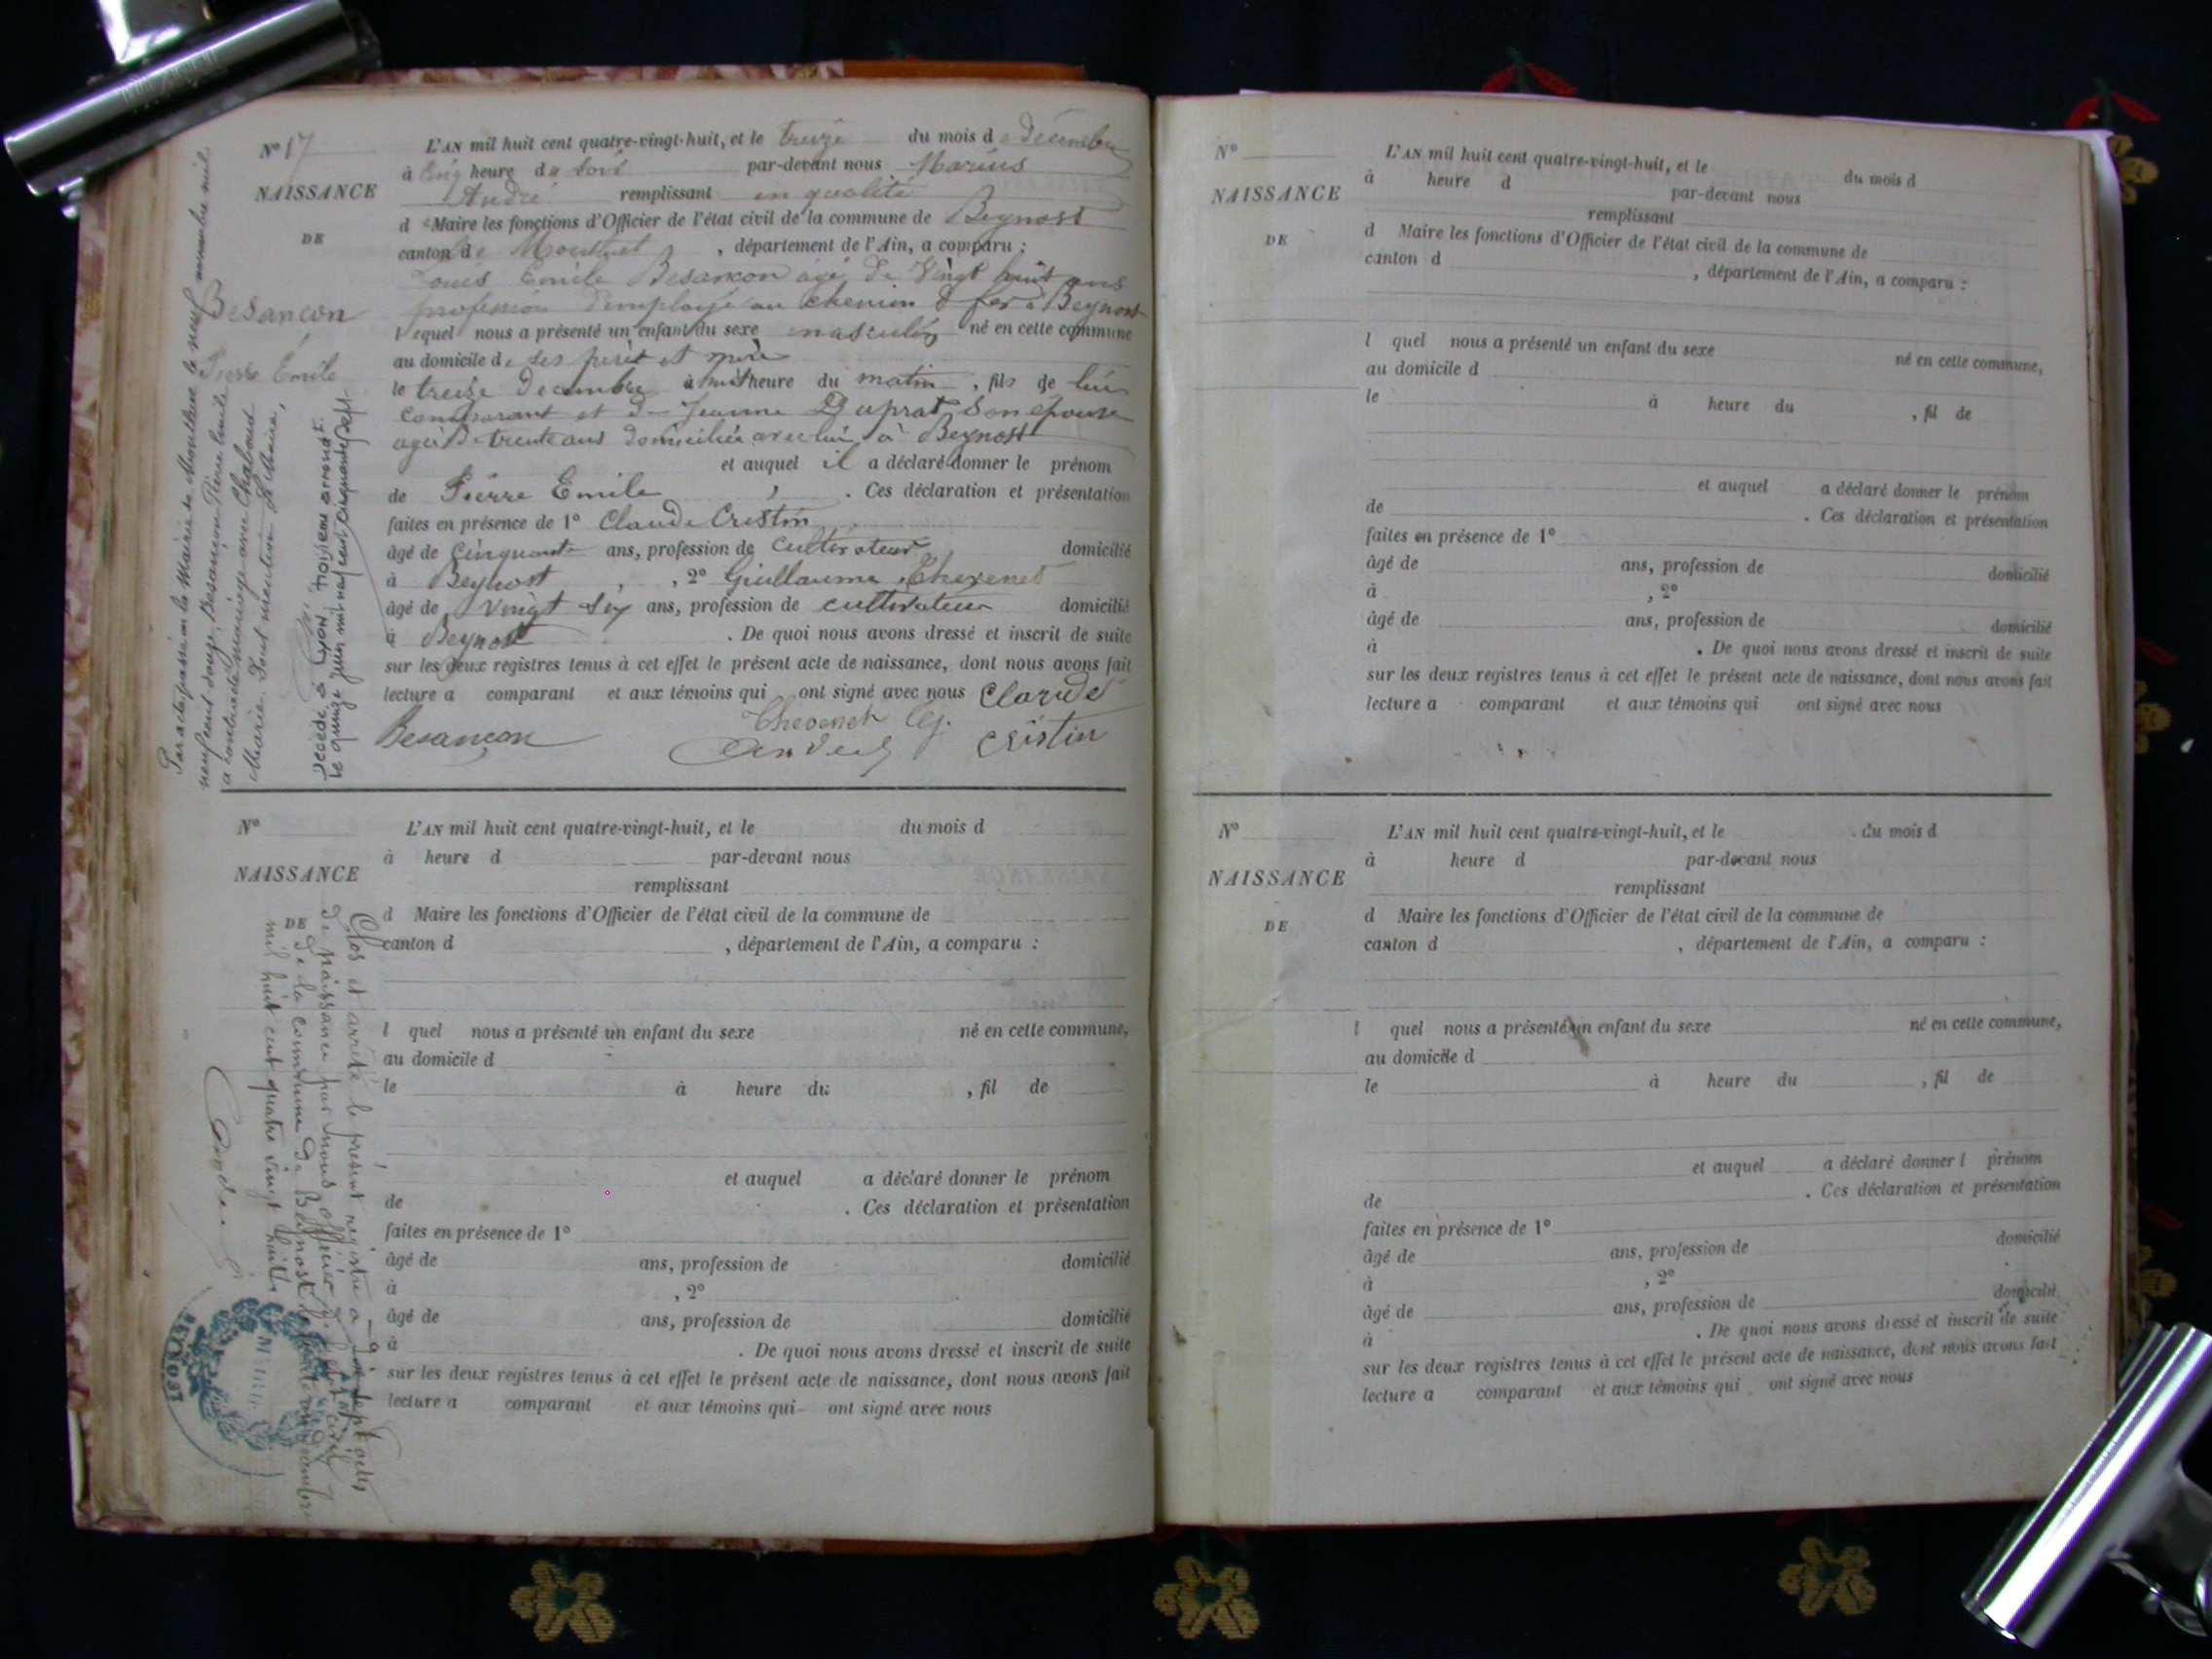 N° 17
NAISSANCE
DE
Besancon
Pierre Emile
L'AN mil huit cent quatre-vingt-huit, et le treize du mois de décembre
à cinq heure du soir par-devant nous Marius
André remplissant en qualité
de Maire les fonctions d'Officier de l'état civil de la commune de Beynost
canton de Montluel, département de l'Ain, a comparu :
Louis Emile Besancon agé de Vingt huit ans
profession d'employé au chemin d fer à Beynost
lequel nous a présenté un enfant du sexe masculin né en cette commune
au domicile de ses père et mère
le treize Decembre à huit heure du matin, fils de lui
comparant et de Jeanne Duprat Son épouse
agée De trente ans domiciliée avec lui à Beynost
et auquel il a déclaré donner le prénom
de Pierre Emile. Ces déclaration et présentation
faites en présence de 1° Claude Cristin
âgé de Cinquante ans, profession de Cultivateur domicilié
à Beynost, 2° Guillaume Thevenet
âgé de Vingt Six ans, profession de cultivateur domicilié
à Beynost. De quoi nous avons dressé et inscrit de suite
sur les deux registres tenus à cet effet le présent acte de naissance, dont nous avons fait
lecture a comparant et aux témoins qui ont signé avec nous Claude
Besancon Thevenet Cristin
Par acte passé en la Mairie de Montluel le neuf novembre mil
neuf cent douze, Besançon Pierre Emile
a contracté mariage avec Chabaud
Marie. Dont mention Le Maire,
Décédé à Lyon troisième arrondt.
le quinze juin mil neuf cent cinquante sept
N°
NAISSANCE
DE
L'AN mil huit cent quatre-vingt-huit, et le du mois d
à heure d par-devant nous
remplissant
d Maire les fonctions d'Officier de l'état civil de la commune de
canton d , département de l'Ain, a comparu :
l quel nous a présenté un enfant du sexe né en cette commune,
au domicile d
le à heure du , fil de
et auquel a déclaré donner le prénom
de . Ces déclaration et présentation
faites en présence de 1°
âgé de ans, profession de domicilié
à , 2°
âgé de ans, profession de domicilié
à . De quoi nous avons dressé et inscrit de suite
sur les deux registres tenus à cet effet le présent acte de naissance, dont nous avons fait
lecture a comparant et aux témoins qui ont signé avec nous
Clos et arrêté le présent registre a dix sept actes
de naissance par nous officier de l'état civil
de la commune de Beynost le décembre
mil huit cent quatre vingt huit
BEYNOST
MAIRIE
N°
NAISSANCE
DE
L'AN mil huit cent quatre-vingt-huit, et le du mois d
à heure d par-devant nous
remplissant
d Maire les fonctions d'Officier de l'état civil de la commune de
canton d , département de l'Ain, a comparu :
l quel nous a présenté un enfant du sexe né en cette commune,
au domicile d
le à heure du , fil de
et auquel a déclaré donner le prénom
de . Ces déclaration et présentation
faites en présence de 1°
âgé de ans, profession de domicilié
à , 2°
âgé de ans, profession de domicilié
à . De quoi nous avons dressé et inscrit de suite
sur les deux registres tenus à cet effet le présent acte de naissance, dont nous avons fait
lecture a comparant et aux témoins qui ont signé avec nous
N°
NAISSANCE
DE
L'AN mil huit cent quatre-vingt-huit, et le du mois d
à heure d par-devant nous
remplissant
d Maire les fonctions d'Officier de l'état civil de la commune de
canton d , département de l'Ain, a comparu :
l quel nous a présenté un enfant du sexe né en cette commune,
au domicile d
le à heure du , fil de
et auquel a déclaré donner l prénom
de . Ces déclaration et présentation
faites en présence de 1°
âgé de ans, profession de domicilié
à , 2°
âgé de ans, profession de domicilié
à . De quoi nous avons dressé et inscrit de suite
sur les deux registres tenus à cet effet le présent acte de naissance, dont nous avons fait
lecture a comparant et aux témoins qui ont signé avec nous